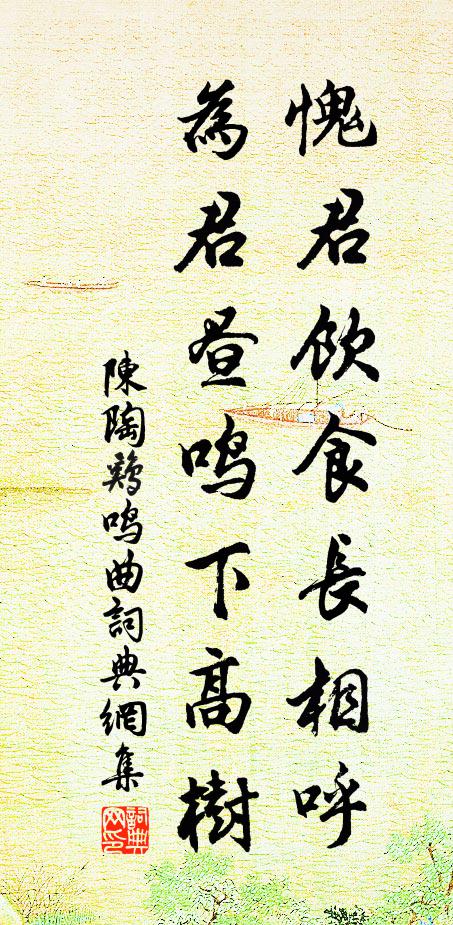 愧君飲食長相呼
為君昼鳴下高樹
陳陶鷄鳴曲詞典網集
詞典
网印